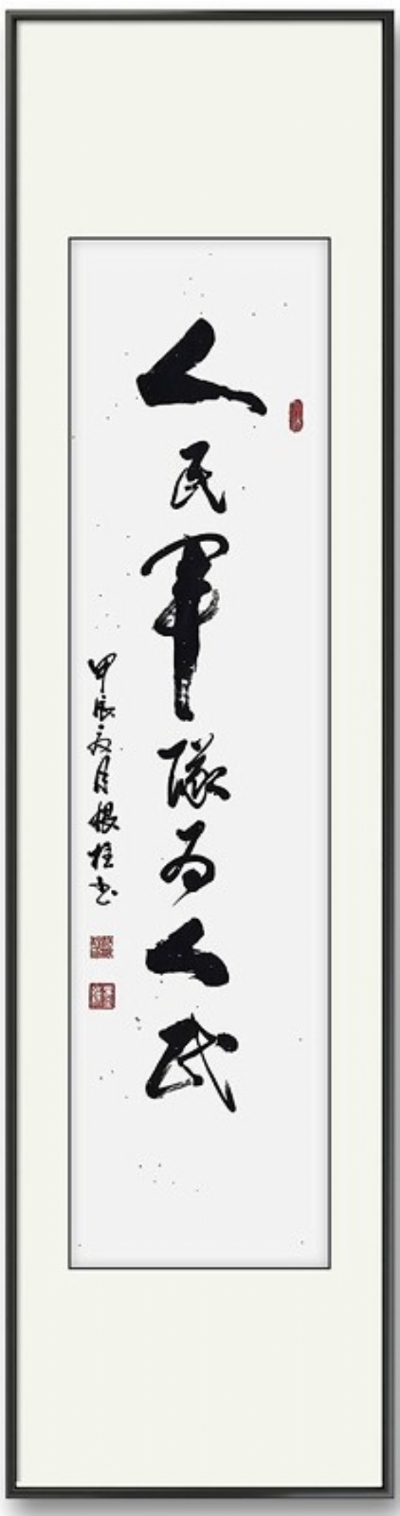 人民军队为人民
甲辰夏月根柱书